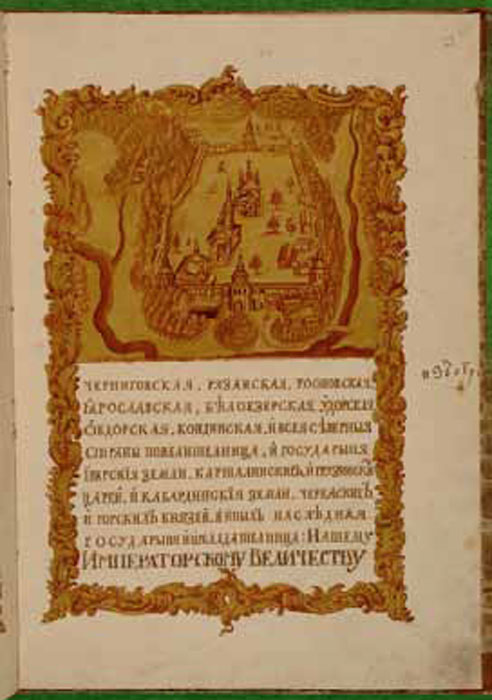 ЧЕРНИГОВСКАЯ, РЯЗАНСКАЯ, РОСТОВСКАЯ
ЯРОСЛАВСКАЯ, БѢЛООЗЕРСКАЯ, УДОРСКАЯ
ОБДОРСКАЯ, КОНДИНСКАЯ, И ВСЕЯ СѢВЕРНЫЯ
СТРАНЫ ПОВЕЛИТЕЛНИЦА, И ГОСУДАРЫНЯ
ІВЕРСКІЯ ЗЕМЛИ, КАРТАЛИНСКИХЪ, И ГРУЗИНСКИХЪ
ЦАРЕЙ, И КАБАРДИНСКІЯ ЗЕМЛИ, ЧЕРКАСКИХЪ
И ГОРСКИХЪ КНЯЗЕЙ, И ИНЫХЪ НАСЛѢДНАЯ
ГОСУДАРЫНЯ И ОБЛАДАТЕЛНИЦА: НАШЕМУ
ИМПЕРАТОРСКОМУ ВЕЛИЧЕСТВУ